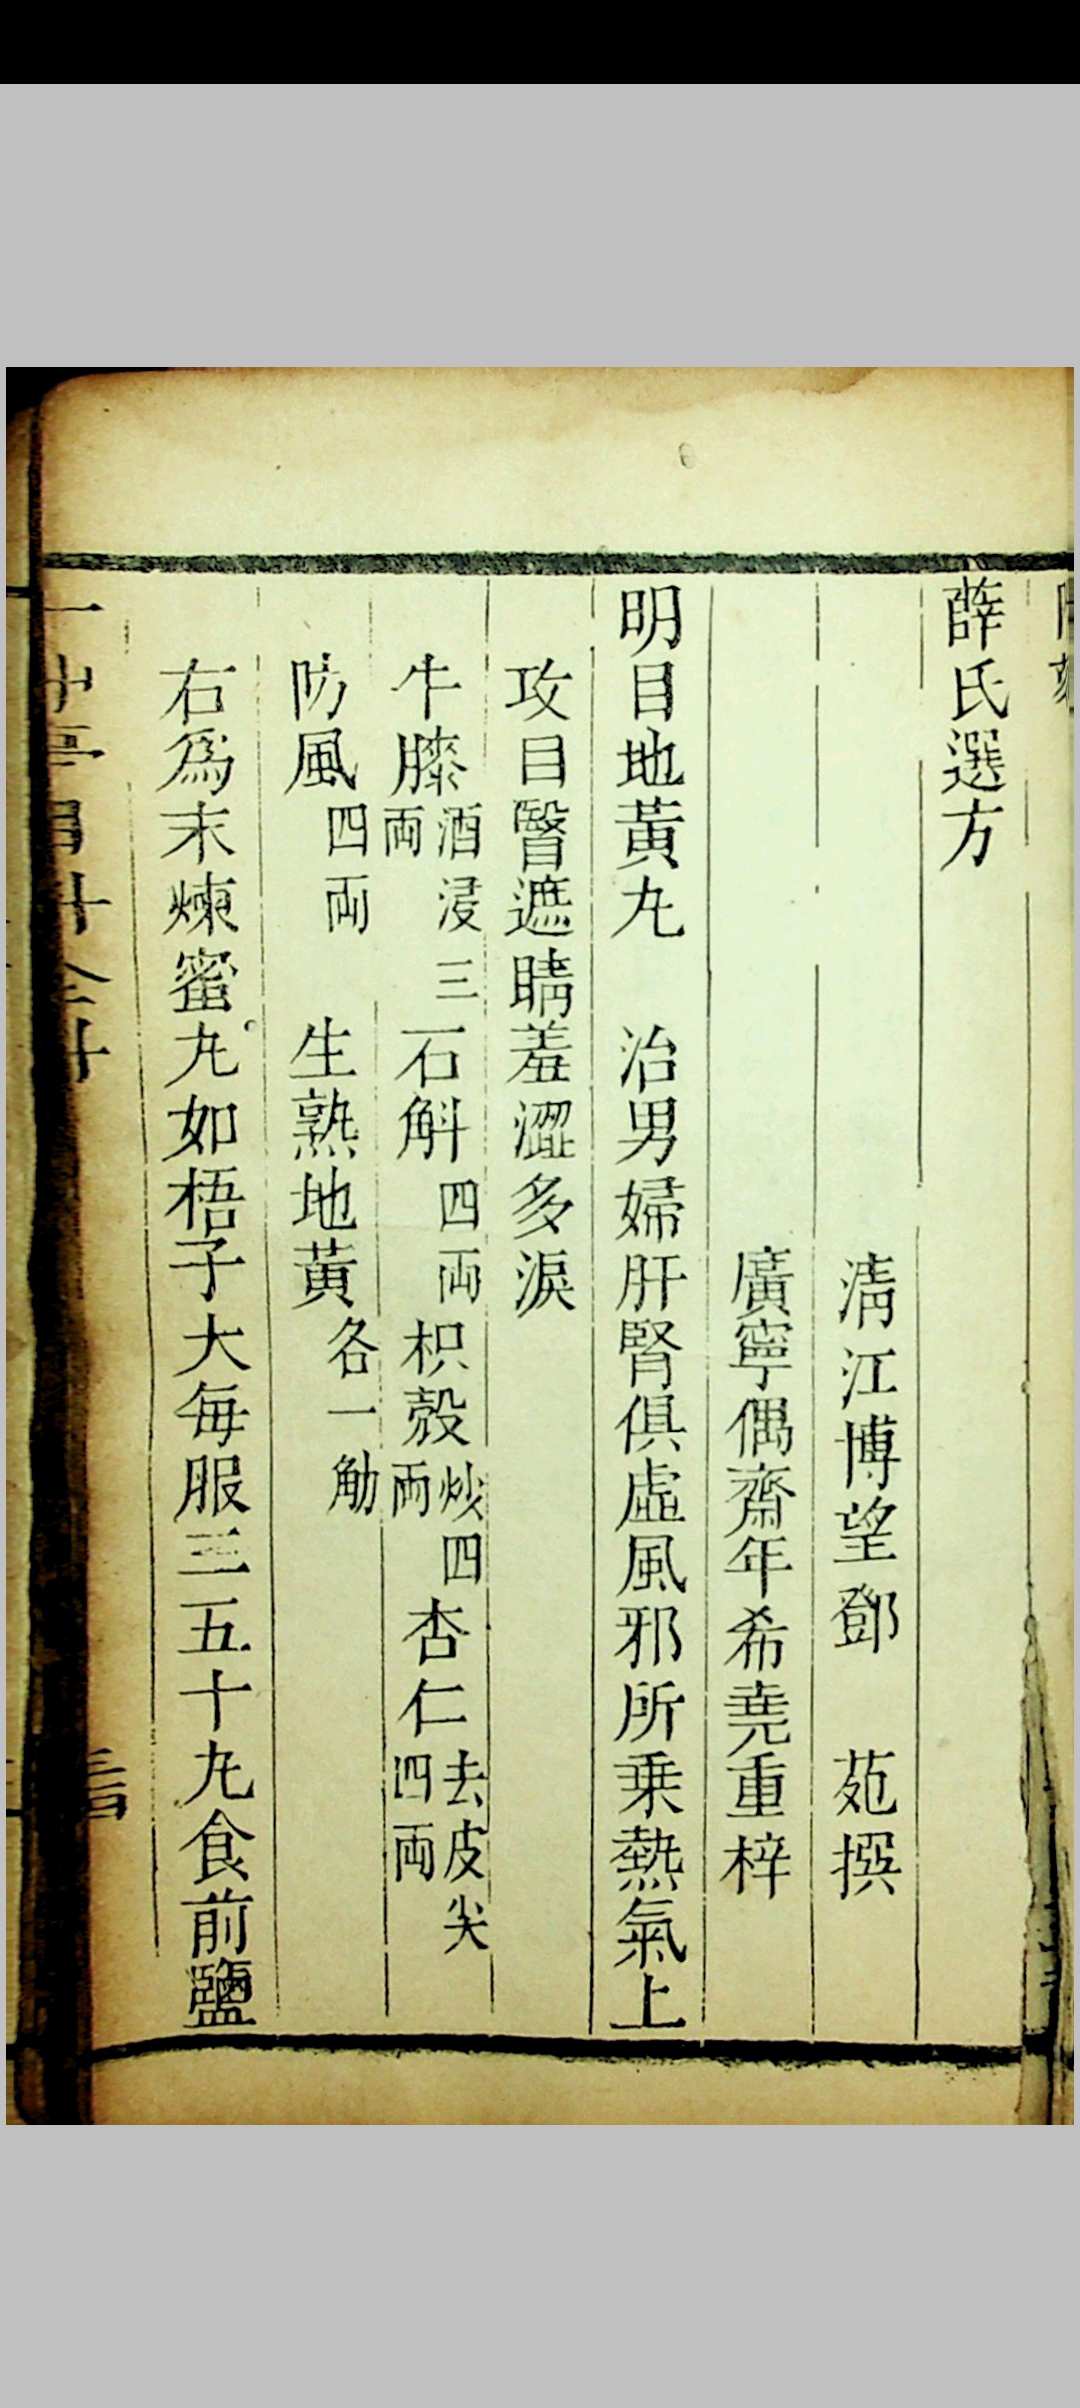 薛氏選方
淸江博望鄧　苑撰
廣寧偶齋年希堯重梓
明目地黃丸　治男婦肝腎俱虛風邪所乗熱氣上
攻目瞖遮睛羞澀多淚
牛膝酒浸三両　石斛四両　枳殼炒四両　杏仁去皮尖四両
防風四両　生熟地黃各一觔
右爲末煉蜜丸如梧子大每服三五十丸食前鹽